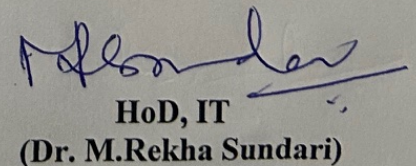 HoD, IT
(Dr. M.Rekha Sundari)